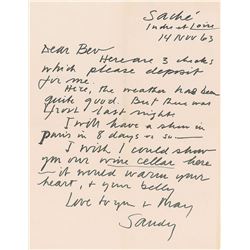 Saché
Indre et Loire
14 Nov 63
Dear Bev
Here are 3 checks
which please deposit
for me.
Here, the weather had been
quite good. But there was
frost last night
I will have a show in
paris in 8 days or so —
I wish I could show
you our wine cellar here
— it would warm your
heart, & your belly
Love to you & Mary
Sandy